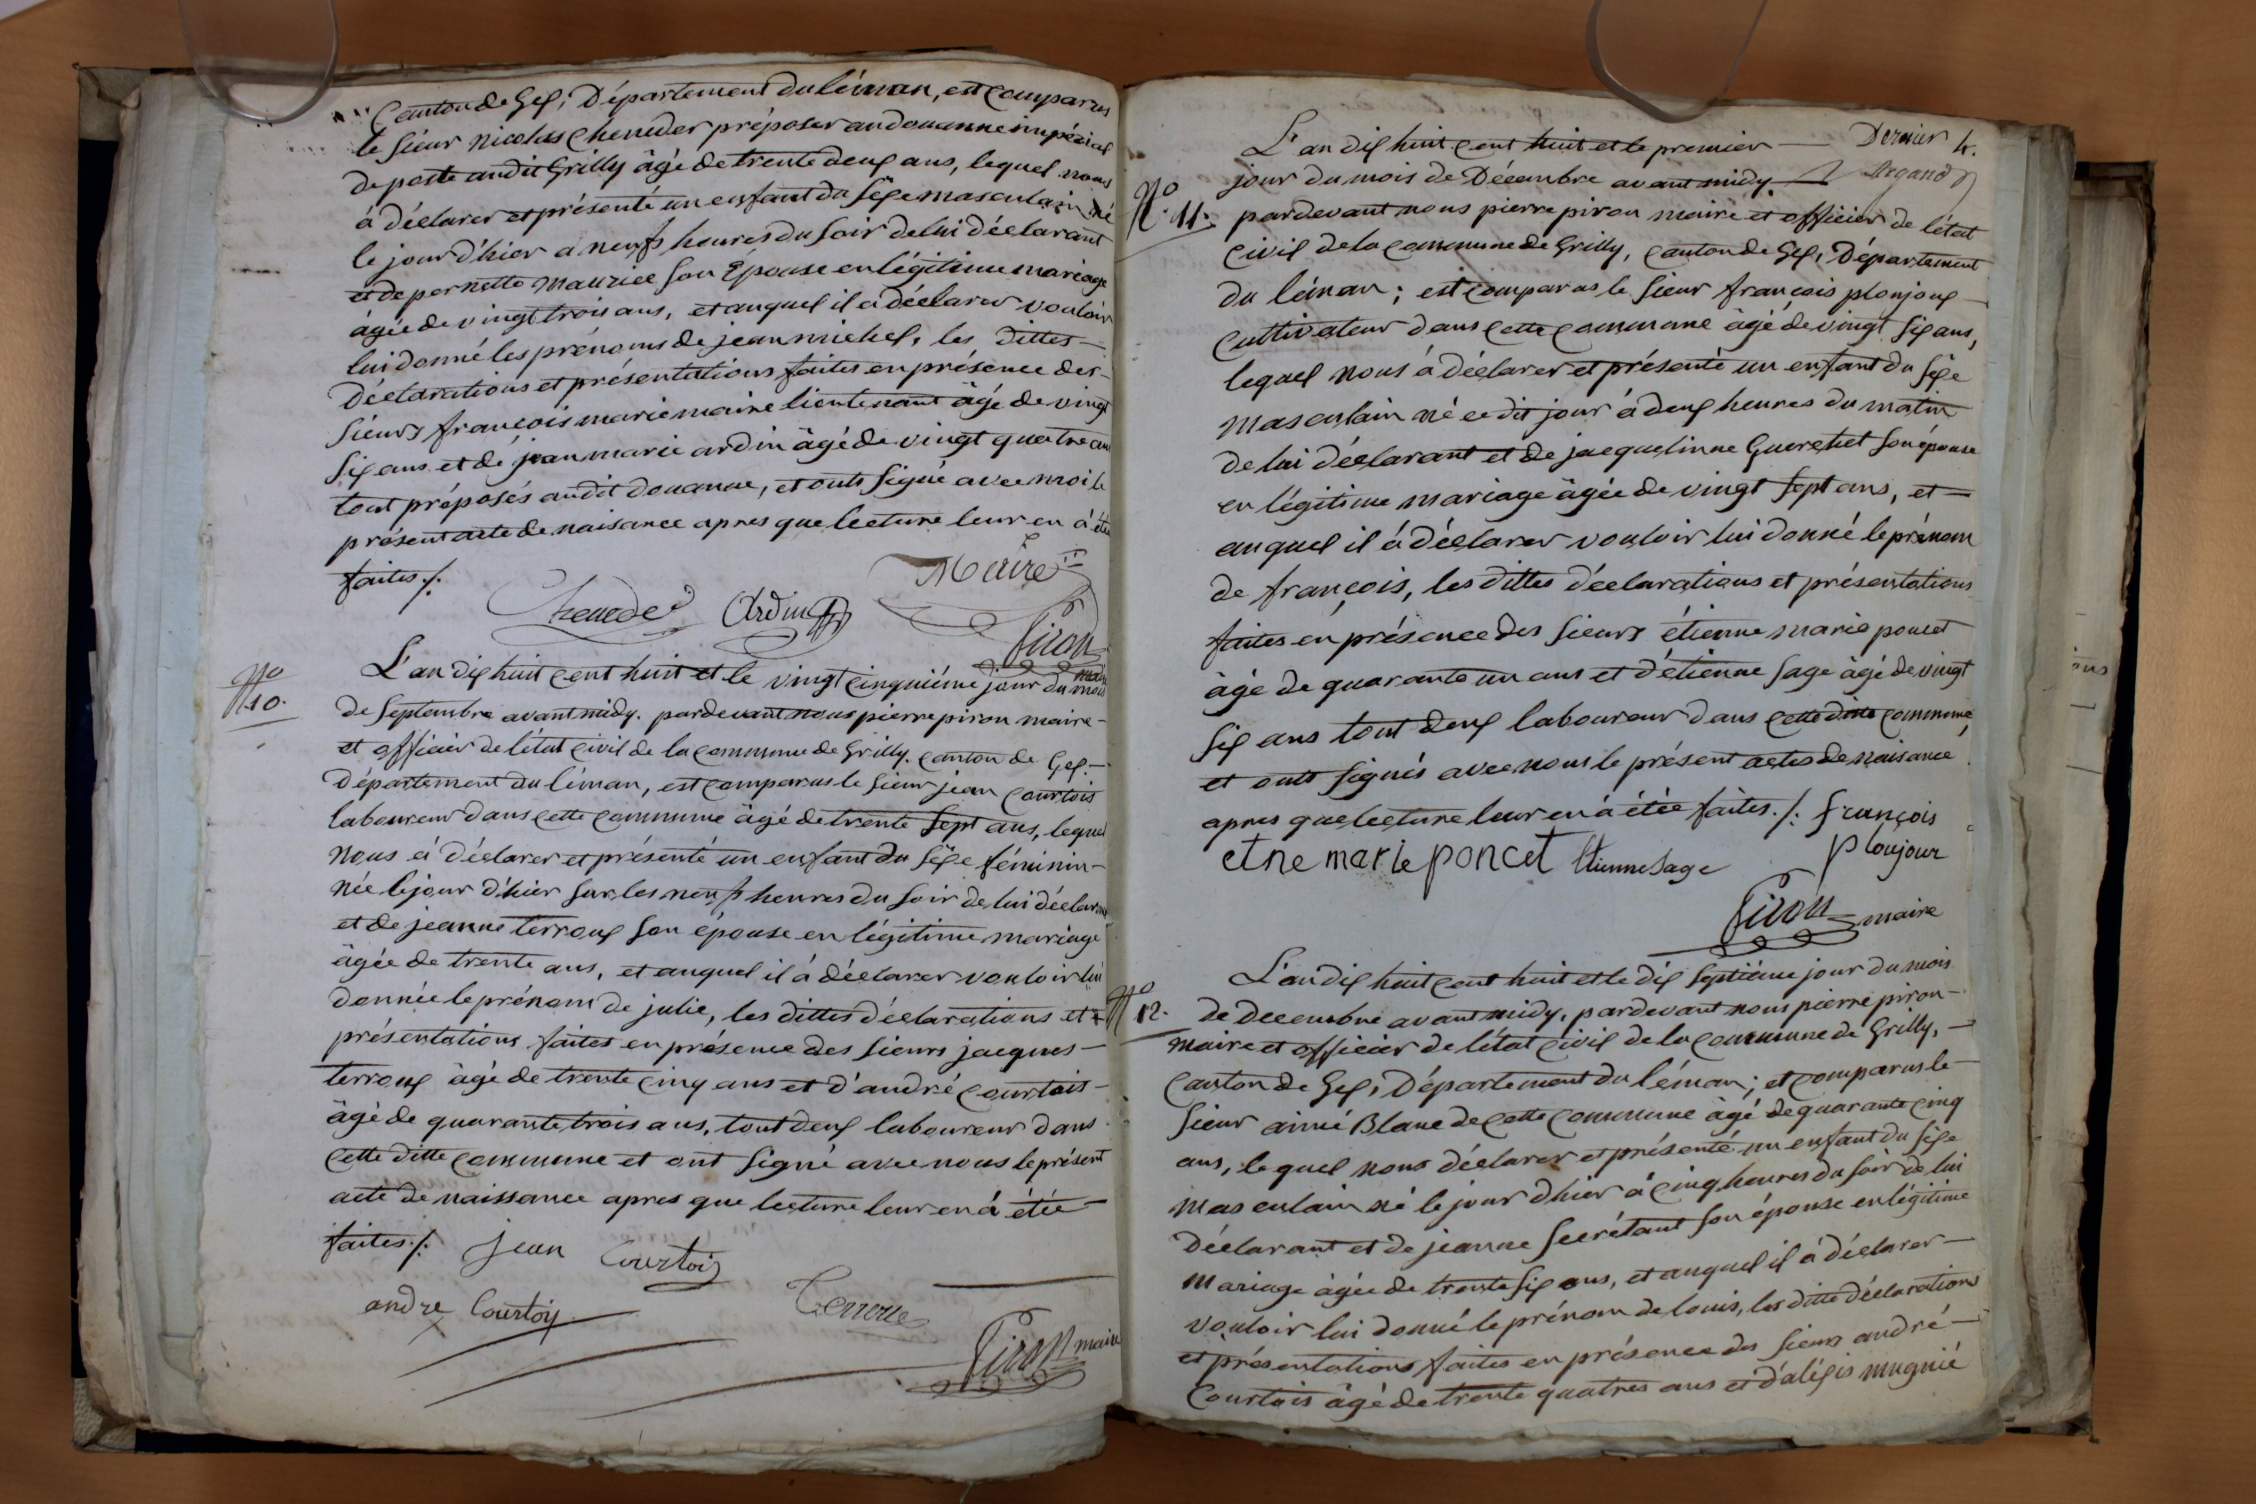 Canton de Gex, Département du léman, est comparus
le sieur nicolas Cheneder préposer au douanne impérial
de poste au dit Grilly âgé de trente deux ans, lequel nous
à déclarer et présenté un enfant du sexe masculain né
le jour d'hier a neufs heures du soir de lui déclarant
et de pernette mauriee son Epouse en légitime mariage
âgée de vingt trois ans, et auquel il a déclarer vouloir
lui donné les prénoms de jean michel, les dittes
Déclarations et présentations faites en présence des
sieurs françois marie maire lieutenant âgé de vingt
six ans et de jean marie ardin âgé de vingt quatre ans
tout préposés au dit douanne, et onts signé avec moi le
présent acte de naisance apres que lecture leur en à été
faites ./.
Chenede Ardin Maire
Piron maire
N° 10.
L'an dix huit cent huit et le vingt cinquiéme jour du mois
de Septembre avant midy. pardevant nous pierre piron maire
et officier de l'état civil de la commune de Grilly. canton de Gex.
Département du léman, est comparus le sieur jean Courtois
laboureur dans cette commune âgé de trente sept ans, lequel
nous à déclarer et présenté un enfant du sexe féminin
née le jour d'hier sur les neufs heures du soir de lui déclarant
et de jeanne terroux son épouse en légitime mariage
âgée de trente ans, et auquel il à déclarer vouloir lui
donnée le prénom de julie, les dittes déclarations et
présentations faites en présence des sieurs jacques
terroux âgé de trente cinq ans et d'andré courtois
âgé de quarante trois ans, tout deux laboureur dans
cette ditte commune et ont signé avec nous le présent
acte de naissance apres que lecture leur en à étée
faites ./. jean Courtois
andre Courtoy Terroux
Piron maire
Dernier 4.
Argand
N° 11.
L'an dix huit cent huit et le premier
jour du mois de Décembre avant midy
pardevant nous pierre piron maire et officier de l'état
civil de la commune de Grilly, canton de Gex, Département
du léman ; est comparus le sieur françois ploujoux
cultivateur dans cette commune âgé de vingt six ans,
lequel nous à déclarer et présenté un enfant du sexe
masculain né ce dit jour à deux heures du matin
de lui déclarant et de jacquelinne Guerchet son épouse
en légitime mariage âgée de vingt sept ans, et
auquel il à déclarer vouloir lui donné le prénom
de françois, les dittes déclarations et présentations
faites en présence des sieurs étienne marie poncet
âgé de quarante un ans et d'étienne sage âgé de vingt
six ans tout deux laboureur dans cette ditte commune,
et onts signés avec nous le présent actes de naisance
apres que lecture leur en à étée faites ./. françois
etne marie poncet Etienne Sage Ploujoux
Piron maire
N° 12.
L'an dix huit cent huit et le dix septiéme jour du mois
de decembre avant midy, pardevant nous pierre piron
maire et officier de l'état civil de la commune de Grilly,
canton de Gex, Département du léman ; et comparus le
sieur aimé Blanc de cette commune âgé de quarante cinq
ans, lequel nous déclarer et présenté un enfant du sexe
masculain né le jour d'hier à cinq heures du soir de lui
déclarant et de jeanne secrétant son épouse en légitime
mariage âgée de trente six ans, et auquel il à déclarer
vouloir lui donné le prénom de louis, les ditte déclarations
et présentations faites en présence des sieurs andré
Courtois âgé de trente quatres ans et d'aléxis mugnié